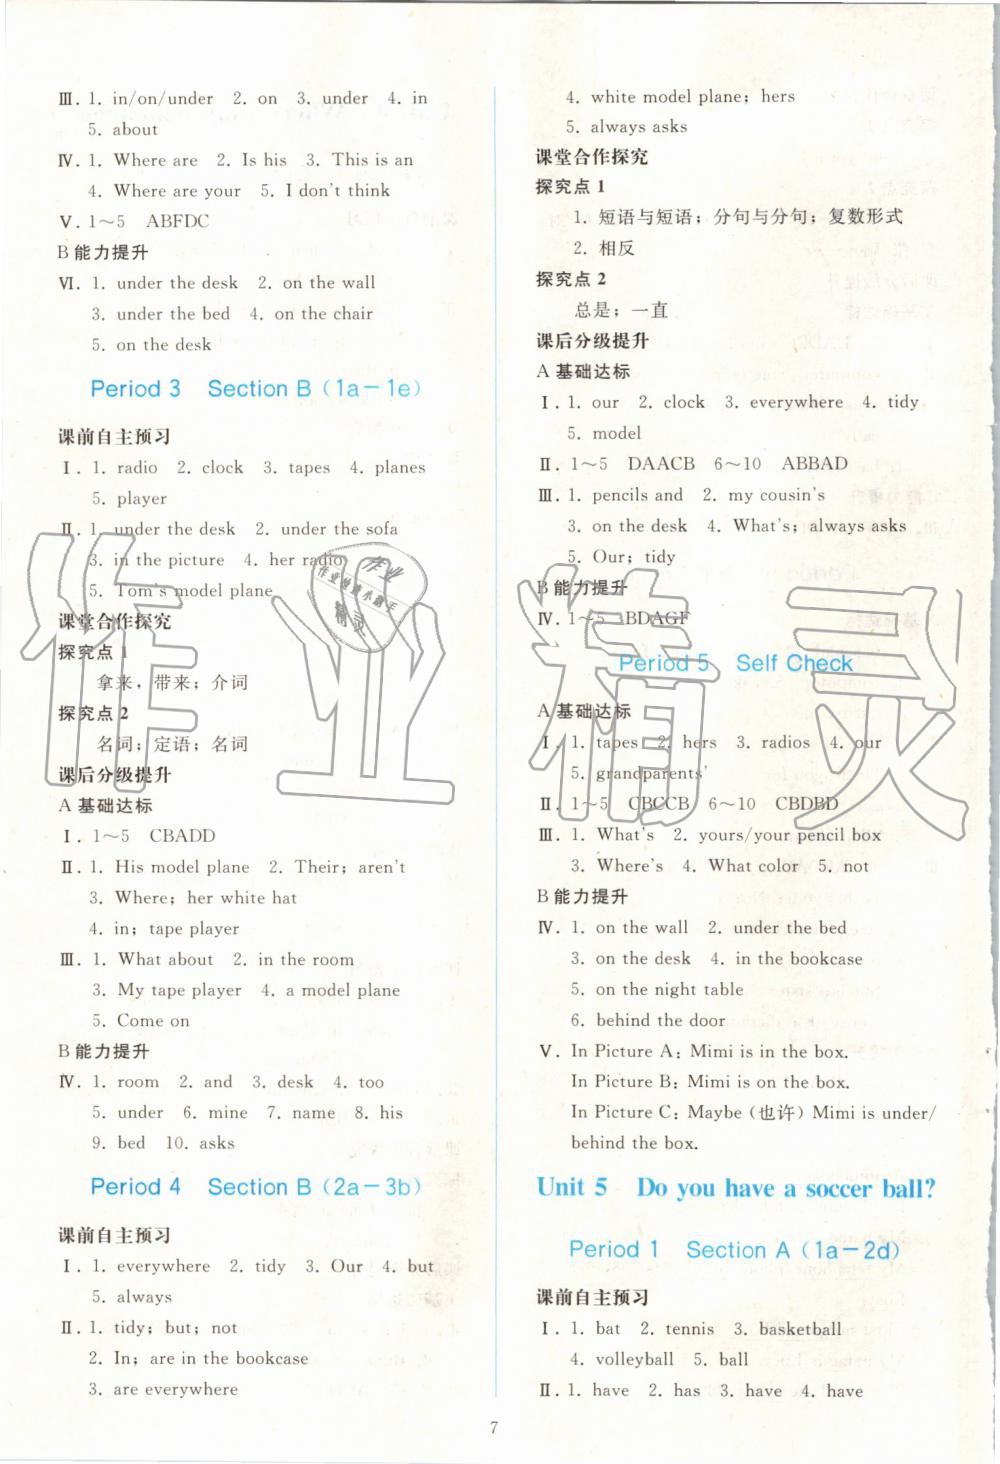 Ⅲ. 1. in/on/under 2. on 3. under 4. in
5. about
Ⅳ. 1. Where are 2. Is his 3. This is an
4. Where are your 5. I don't think
Ⅴ. 1～5 ABFDC
B 能力提升
Ⅵ. 1. under the desk 2. on the wall
3. under the bed 4. on the chair
5. on the desk
Period 3 Section B (1a－1e)
课前自主预习
Ⅰ. 1. radio 2. clock 3. tapes 4. planes
5. player
Ⅱ. 1. under the desk 2. under the sofa
3. in the picture 4. her radio
5. Tom's model plane
课堂合作探究
探究点 1
拿来，带来；介词
探究点 2
名词；定语；名词
课后分级提升
A 基础达标
Ⅰ. 1～5 CBADD
Ⅱ. 1. His model plane 2. Their; aren't
3. Where; her white hat
4. in; tape player
Ⅲ. 1. What about 2. in the room
3. My tape player 4. a model plane
5. Come on
B 能力提升
Ⅳ. 1. room 2. and 3. desk 4. too
5. under 6. mine 7. name 8. his
9. bed 10. asks
Period 4 Section B (2a－3b)
课前自主预习
Ⅰ. 1. everywhere 2. tidy 3. Our 4. but
5. always
Ⅱ. 1. tidy; but; not
2. In; are in the bookcase
3. are everywhere
4. white model plane; hers
5. always asks
课堂合作探究
探究点 1
1. 短语与短语；分句与分句；复数形式
2. 相反
探究点 2
总是；一直
课后分级提升
A 基础达标
Ⅰ. 1. our 2. clock 3. everywhere 4. tidy
5. model
Ⅱ. 1～5 DAACB 6～10 ABBAD
Ⅲ. 1. pencils and 2. my cousin's
3. on the desk 4. What's; always asks
5. Our; tidy
B 能力提升
Ⅳ. 1～5 BDAGF
Period 5 Self Check
A 基础达标
Ⅰ. 1. tapes 2. hers 3. radios 4. our
5. grandparents'
Ⅱ. 1～5 CBCCB 6～10 CBDBD
Ⅲ. 1. What's 2. yours/your pencil box
3. Where's 4. What color 5. not
B 能力提升
Ⅳ. 1. on the wall 2. under the bed
3. on the desk 4. in the bookcase
5. on the night table
6. behind the door
Ⅴ. In Picture A: Mimi is in the box.
In Picture B: Mimi is on the box.
In Picture C: Maybe (也许) Mimi is under/
behind the box.
Unit 5 Do you have a soccer ball?
Period 1 Section A (1a－2d)
课前自主预习
Ⅰ. 1. bat 2. tennis 3. basketball
4. volleyball 5. ball
Ⅱ. 1. have 2. has 3. have 4. have
7
作业精灵